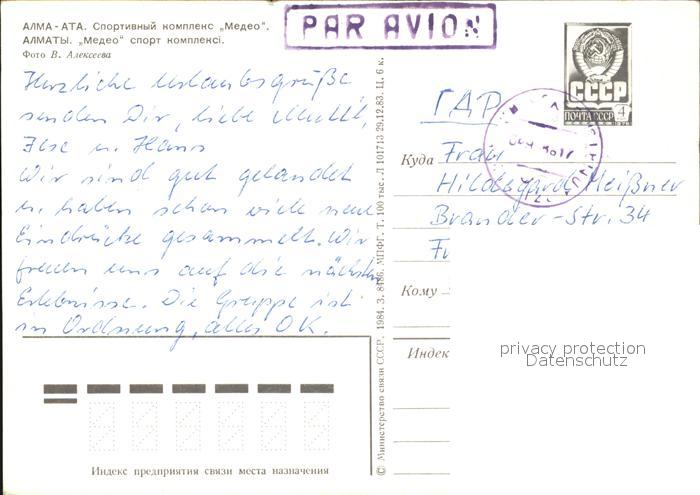 АЛМА-АТА. Спортивный комплекс „Медео".
АЛМАТЫ. „Медео" спорт комплексі.
Фото В. Алексеева
PAR AVION
Herzliche Urlaubsgrüße
senden Dir, liebe Mutti,
Ilse u. Hans
Wir sind gut gelandet
u. haben schon viele neue
Eindrücke gesammelt. Wir
freuen uns auf die nächsten
Erlebnisse. Die Gruppe ist
in Ordnung, alles OK.
Индекс предприятия связи места назначения
© Министерство связи СССР. 1984. З. 8486. МПФГ. Т. 100 тыс. Л 101713 29.12.83. Ц. 6 к.
СССР
ПОЧТА СССР 4
ГДР
Куда Frau
Hildegard Meißner
Brander-Str. 34
Fr
Кому
Индек
privacy protection
Datenschutz